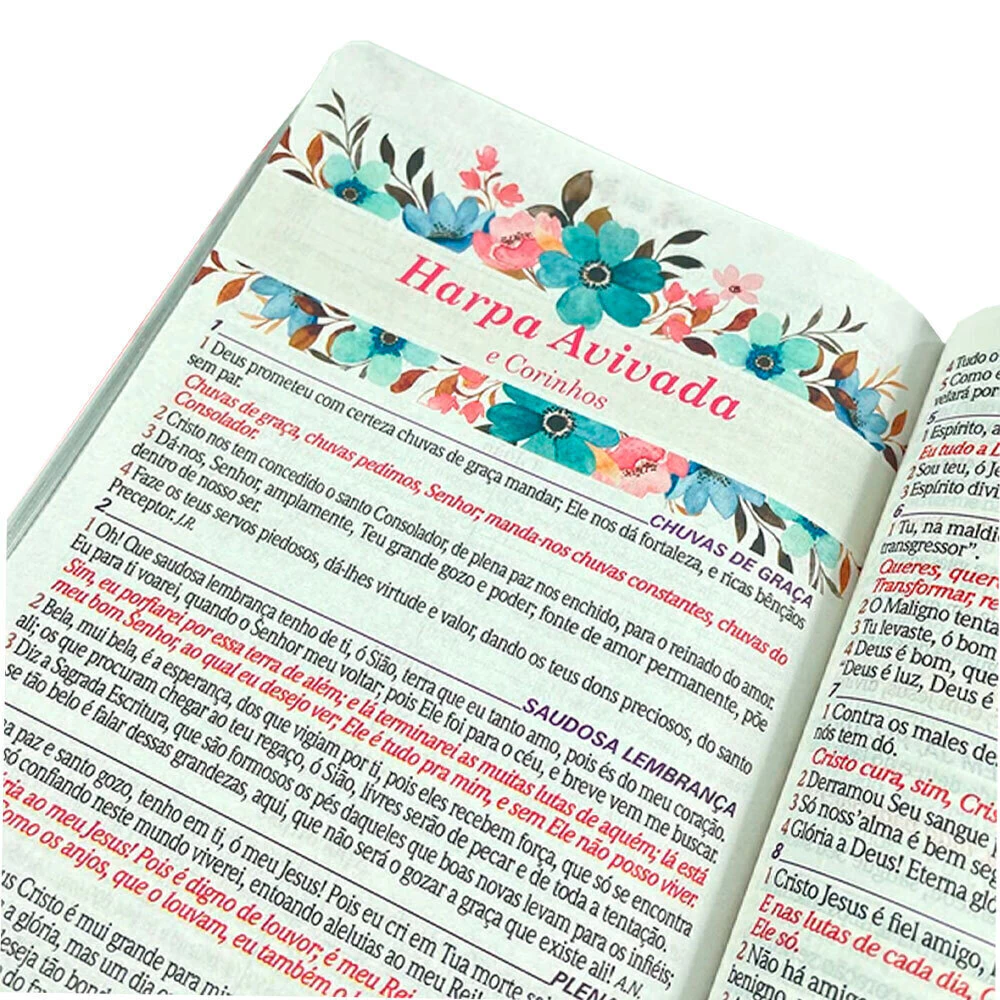 Harpa Avivada
e Corinhos
1
CHUVAS DE GRAÇA
1 Deus prometeu com certeza chuvas de graça mandar; Ele nos dá fortaleza, e ricas bênçãos
sem par.
Chuvas de graça, chuvas pedimos, Senhor; manda-nos chuvas constantes, chuvas do
Consolador.
2 Cristo nos tem concedido o santo Consolador, de plena paz nos enchido, para o reinado do amor.
3 Dá-nos, Senhor, amplamente, Teu grande gozo e poder; fonte de amor permanente, põe
dentro de nosso ser.
4 Faze os teus servos piedosos, dá-lhes virtude e valor, dando os teus dons preciosos, do santo
Preceptor. J.R.
2
SAUDOSA LEMBRANÇA
1 Oh! Que saudosa lembrança tenho de ti, ó Sião, terra que eu tanto amo, pois és do meu coração.
Eu para ti voarei, quando o Senhor meu voltar; pois Ele foi para o céu, e breve vem me buscar.
Sim, eu porfiarei por essa terra de além; e lá terminarei as muitas lutas de aquém; lá está
meu bom Senhor, ao qual eu desejo ver; Ele é tudo pra mim, e sem Ele não posso viver.
2 Bela, mui bela, é a esperança, dos que vigiam por ti, pois eles recebem força, que só se encontra
ali; os que procuram chegar ao teu regaço, ó Sião, livres serão de pecar e de toda a tentação.
3 Diz a Sagrada Escritura, que são formosos os pés daqueles que boas novas levam para os infiéis;
se tão belo é falar dessas grandezas, aqui, que não será o gozar a graça que existe ali! A.N.
PLENA
paz e santo gozo, tenho em ti, ó meu Jesus! Pois eu cri em Tua morte
só confiando neste mundo viverei, entoando aleluias ao meu Rei!
ao meu Jesus! Pois é digno de louvor; é meu Rei
como os anjos, que o louvam, eu também o
Cristo é mui grande para
a glória, mas um dia
tão
4 Tudo o
5 Como e
velará por
5
1 Espírito, a
Eu tudo a
2 Sou teu, ó Je
3 Espírito divi
6
1 Tu, na maldi
transgressor”.
Queres, quer
Transformar, re
2 O Maligno tenta
3 Tu levaste, ó bom
4 Deus é bom, que
“Deus é luz, Deus é
7
1 Contra os males de
nós tem dó.
Cristo cura, sim, Cri
2 Derramou Seu sangue
3 Só noss’alma é bem seg
4 Glória a Deus! Eterna gló
8
1 Cristo Jesus é fiel amigo,
E nas lutas de cada dia,
Ele só.
2 Não há amig
benigno